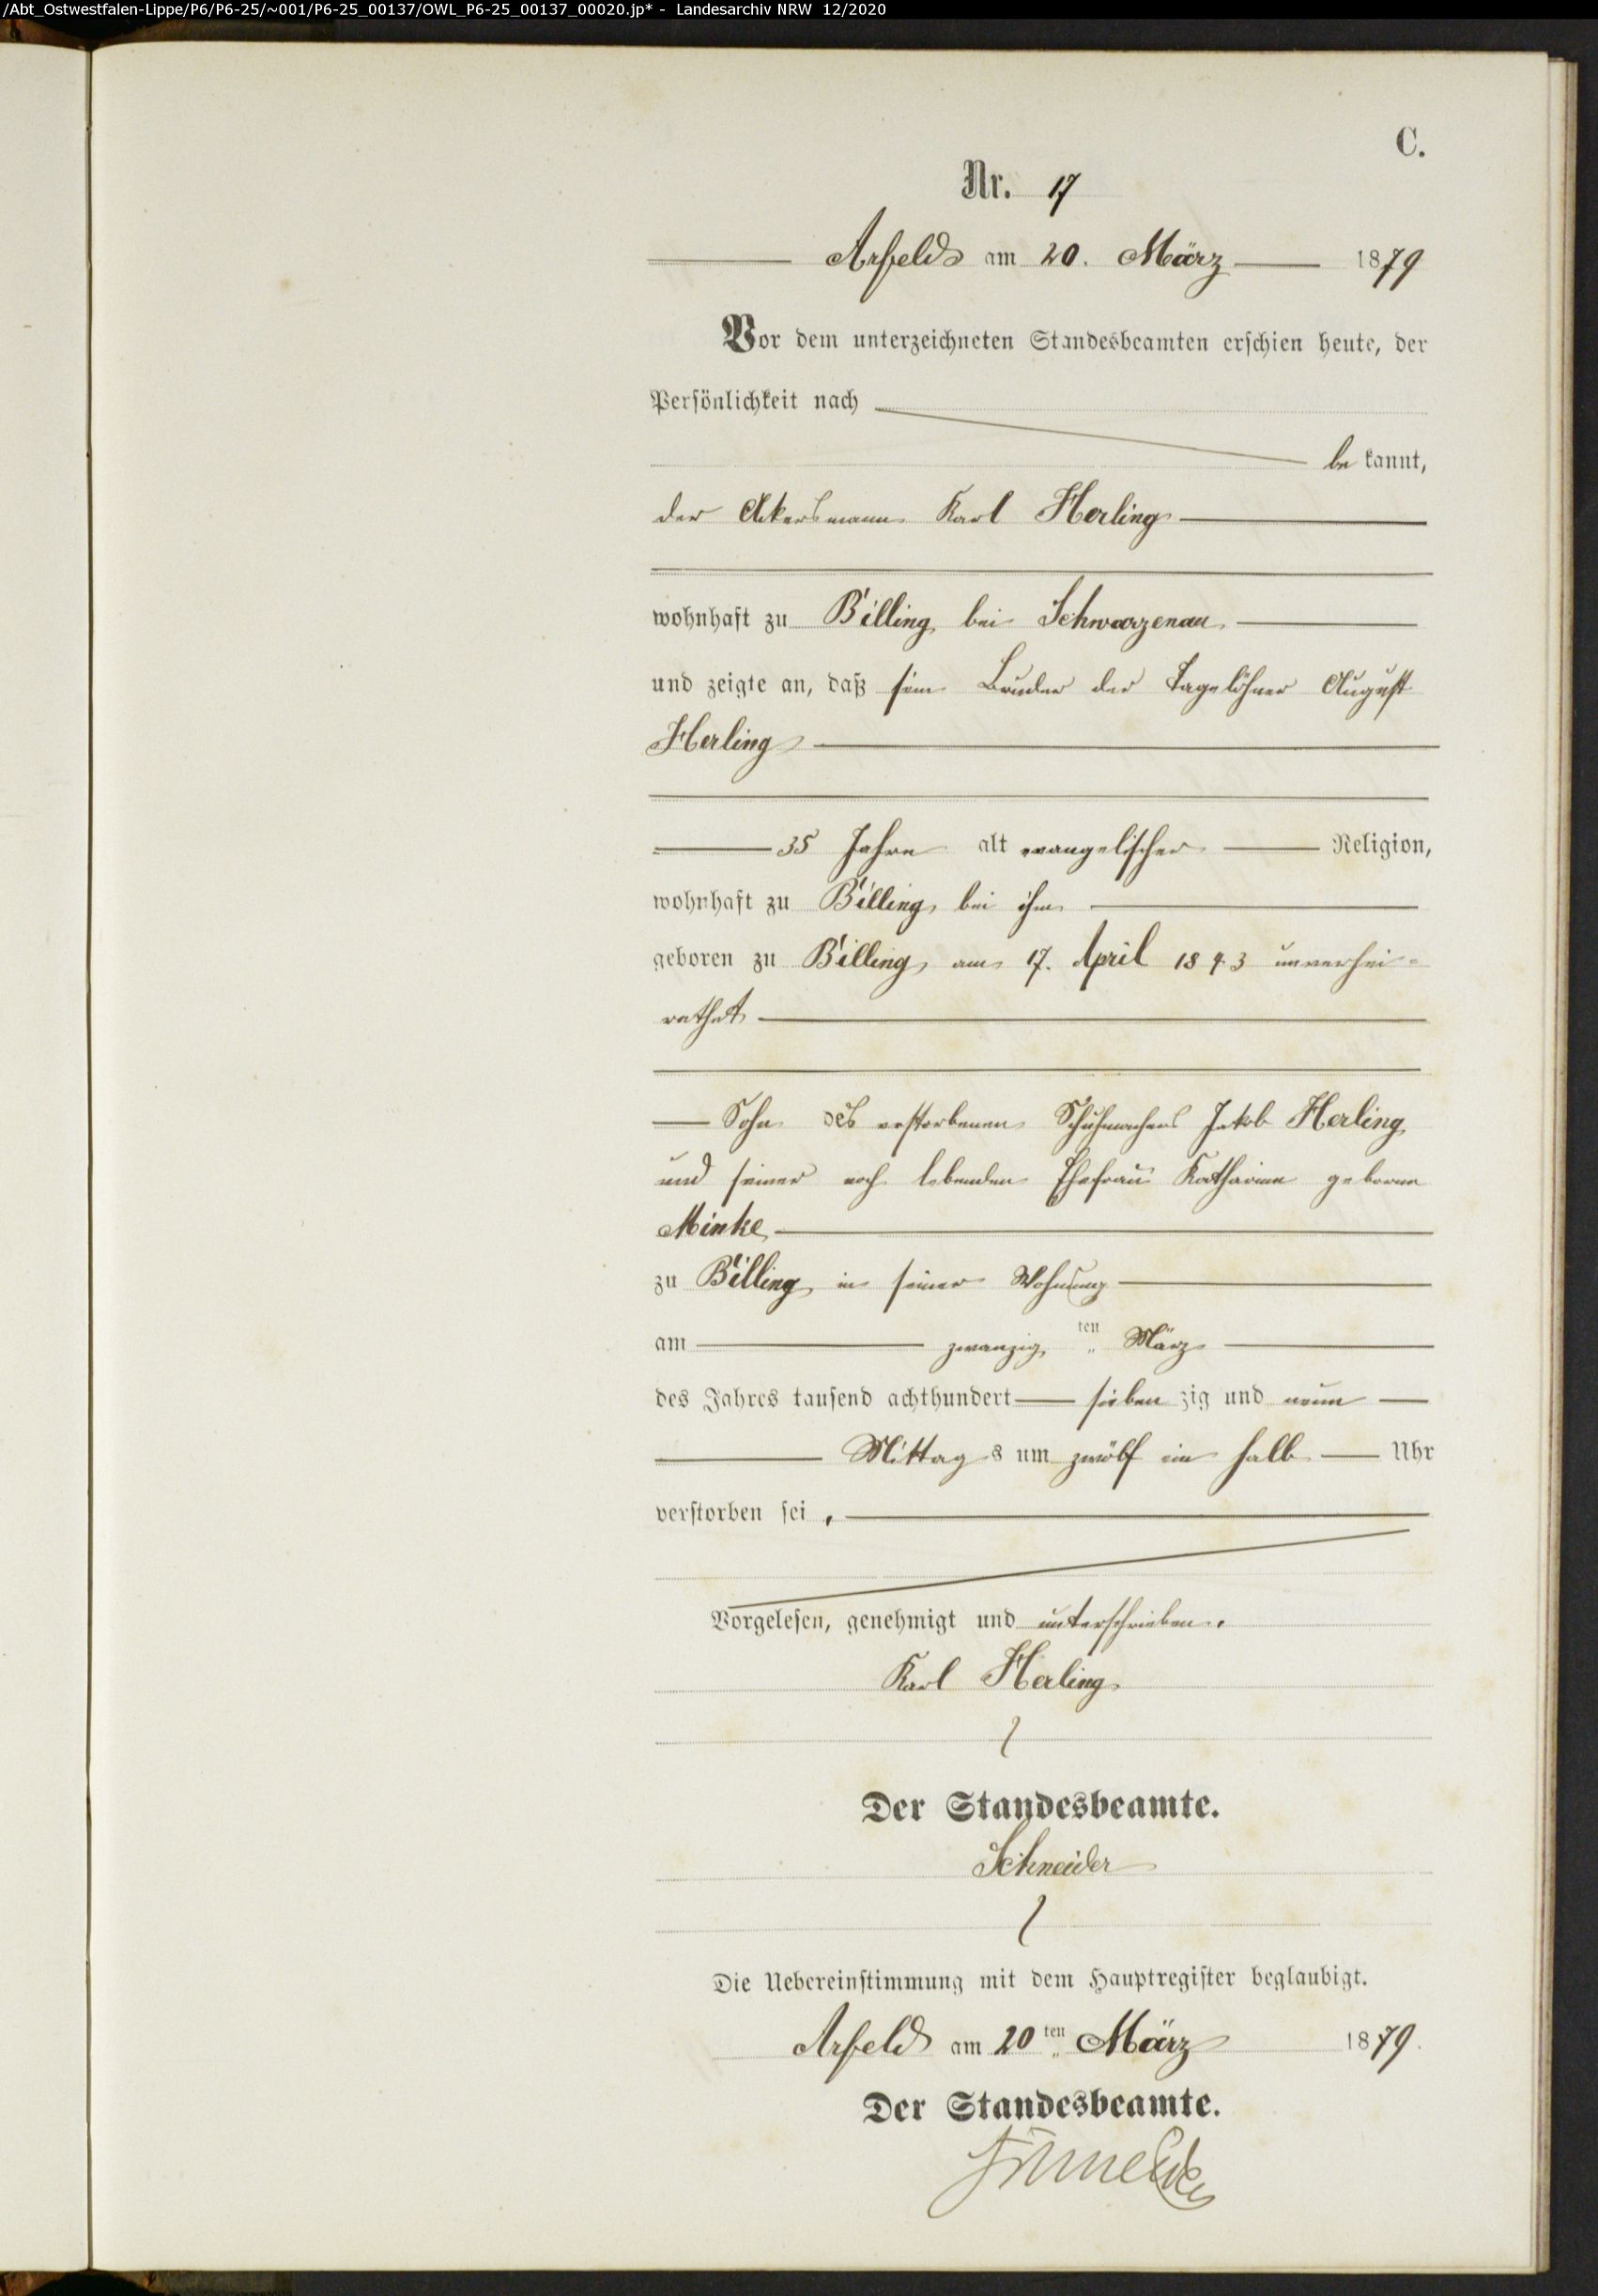 /Abt_Ostwestfalen-Lippe/P6/P6-25/~001/P6-25_00137/OWL_P6-25_00137_00020.jp* - Landesarchiv NRW 12/2020
C.
Nr. 17
Arfeld am 20. März 1879
Vor dem unterzeichneten Standesbeamten erschien heute, der
Persönlichkeit nach
be kannt,
der Ackersmann Karl Herling
wohnhaft zu Billing bei Schwarzenau
und zeigte an, daß sein Bruder der Tagelöhner August
Herling
35 Jahre alt evangelischer Religion,
wohnhaft zu Billing, bei ihm
geboren zu Billing, am 17. April 1843 unverhei-
rathet
Sohn des verstorbenen Schuhmachers Jakob Herling
und seiner noch lebenden Ehefrau Katharina geborne
Minke
zu Billing in seiner Wohnung
am zwanzig ten März
des Jahres tausend achthundert sieben zig und neun
Mittag s um zwölf ein halb Uhr
verstorben sei.
Vorgelesen, genehmigt und unterschrieben.
Karl Herling
Der Standesbeamte.
Schneider
Die Uebereinstimmung mit dem Hauptregister beglaubigt.
Arfeld am 20ten März 1879.
Der Standesbeamte.
Schneider